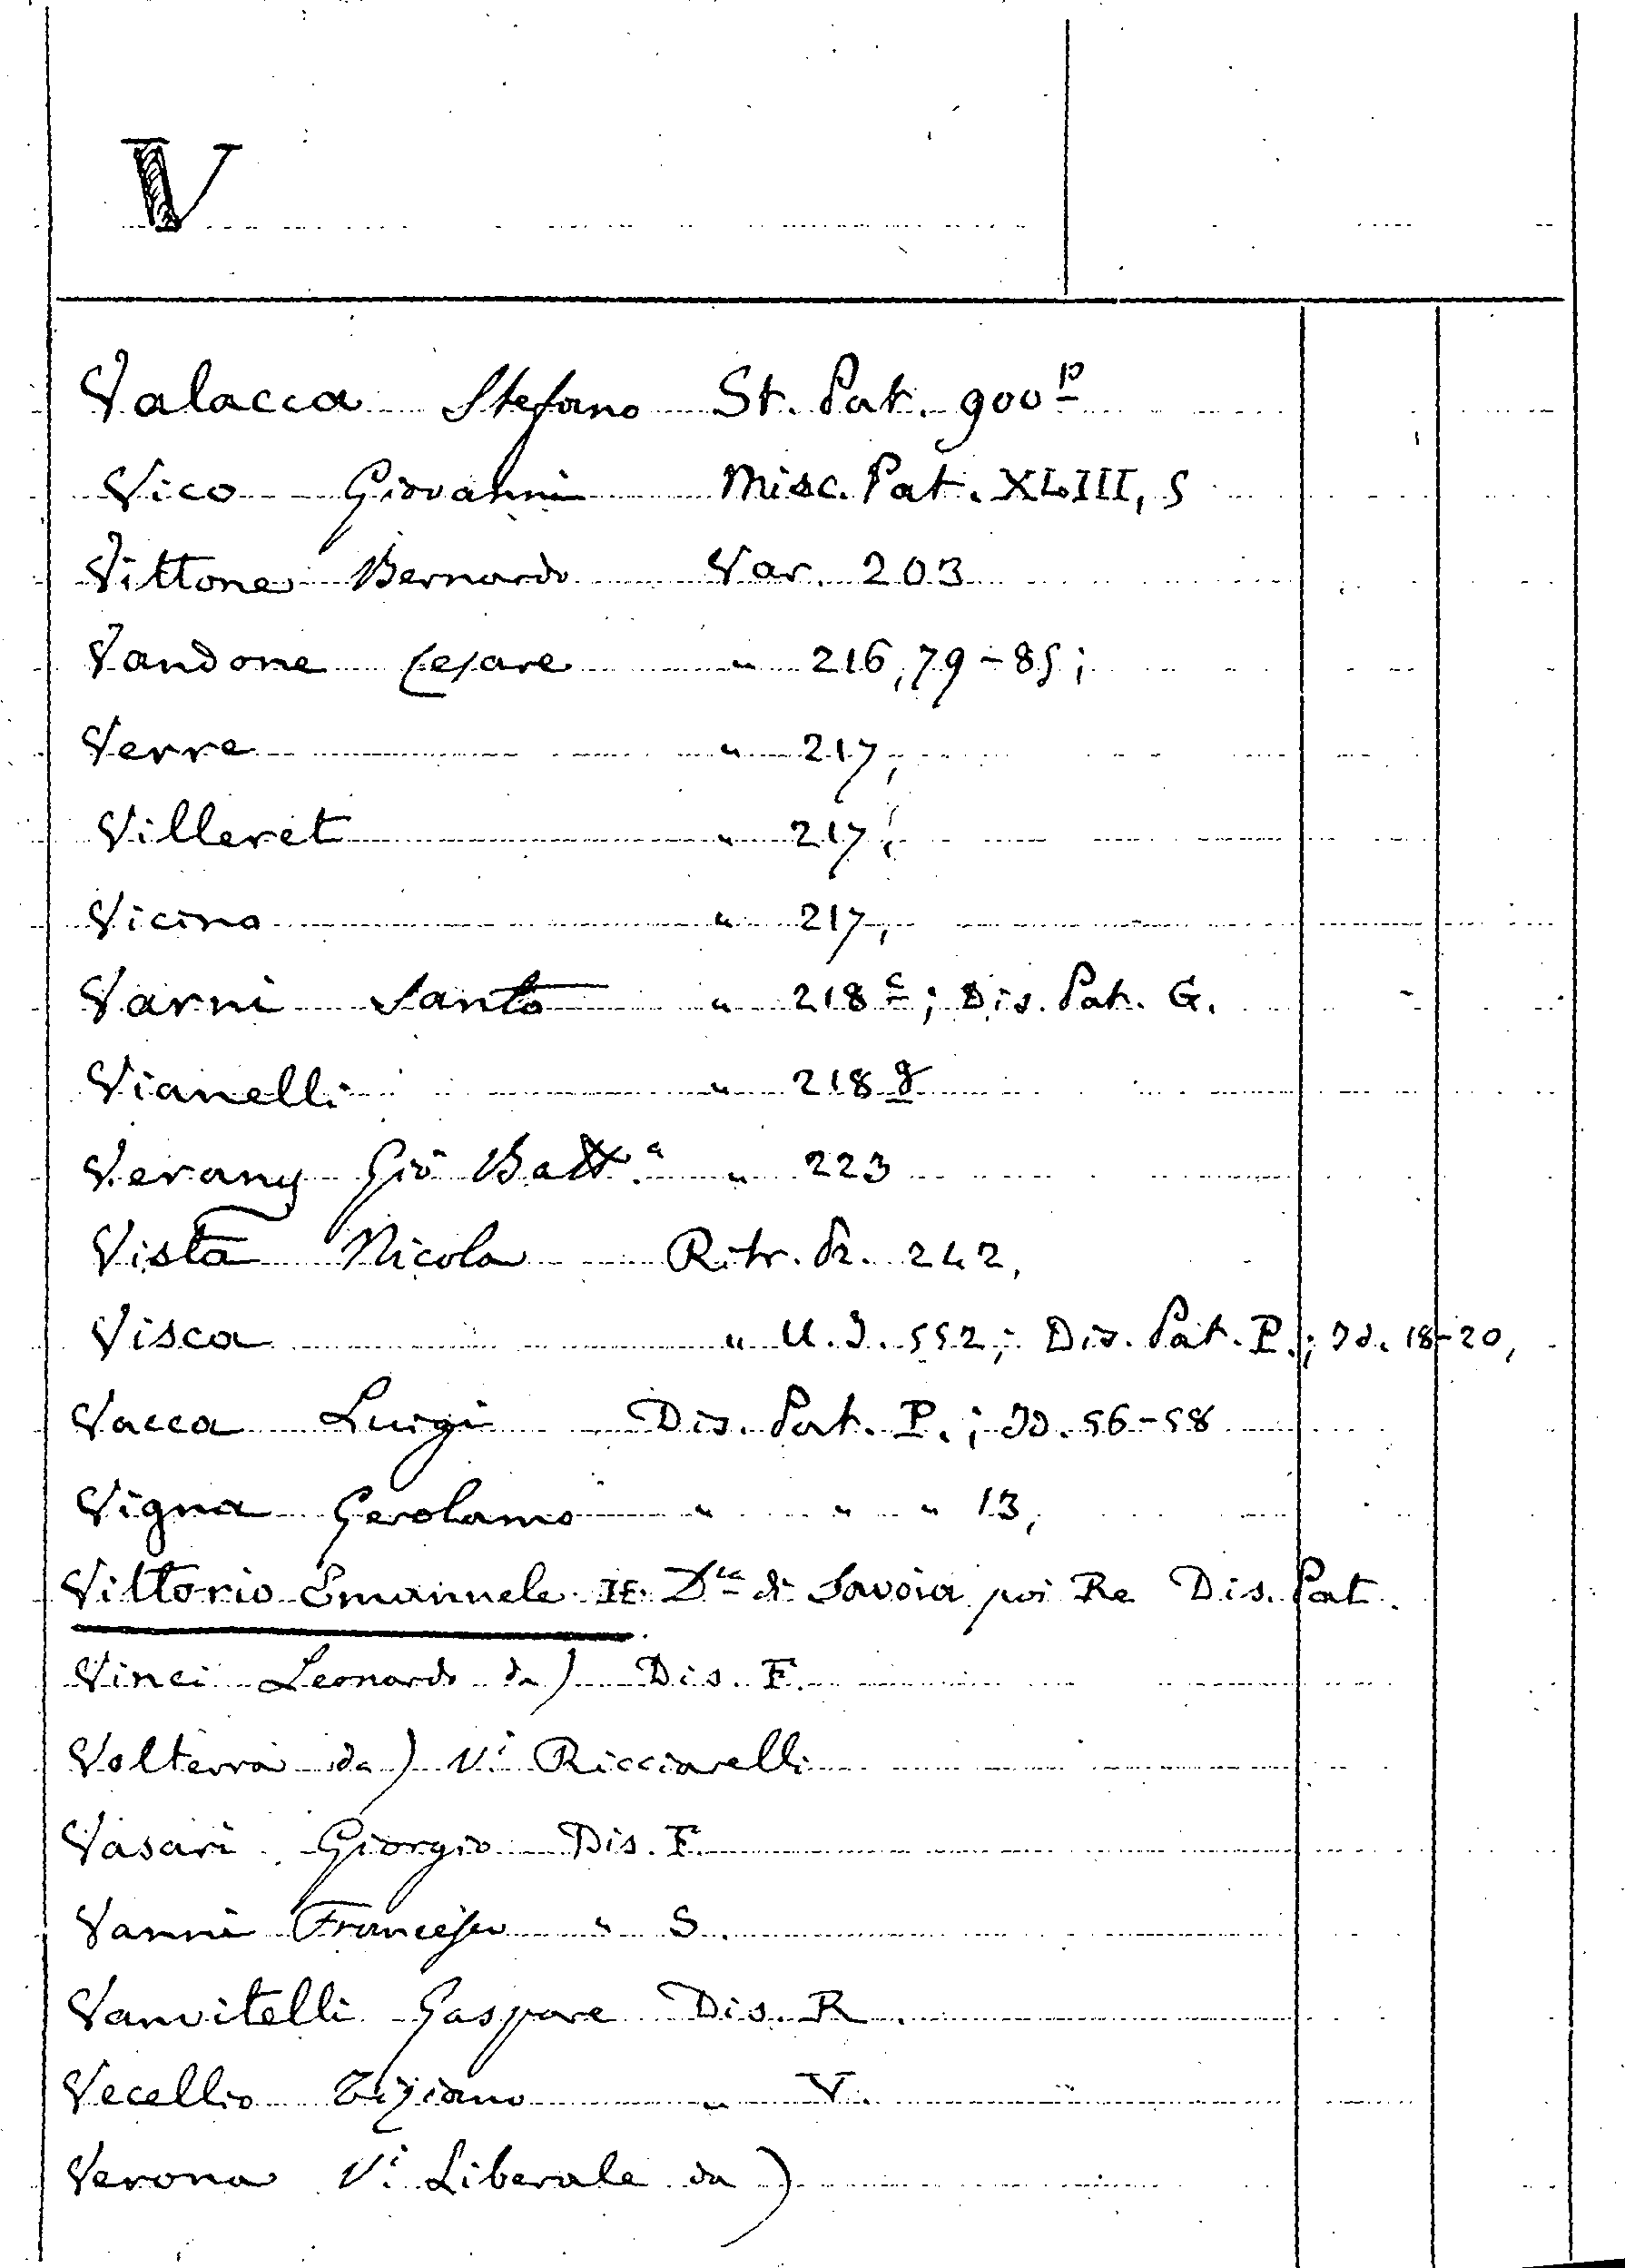 V
Valacca Stefano St. Pat. 900 p
Vico Giovanni Misc. Pat. XLIII, 5
Vittone Bernardo Var. 203
Vandone Cesare " 216, 79-85;
Verre " 217,
Villeret " 217;
Vicino " 217,
Varni Santo " 218 c; Dis. Pat. G.
Vianelli " 218 g
Verany Giò Batt.a " 223
Vista Nicola Ritr. Pr. 242,
Visca " U.I. 552; Dis. Pat. P.; Id. 18-20,
Vacca Luigi Dis. Pat. P.; Id. 56-58
Vigna Gerolamo " " " 13,
Vittorio Emanuele II. Dca di Savoia poi Re Dis. Pat.
Vinci Leonardo da) Dis. F.
Volterra da) Vi Ricciarelli
Vasari Giorgio Dis. F.
Vanni Francesco " S.
Vanvitelli Gaspare Dis. R.
Vecellio Tiziano " V.
Verona Vi Liberale da)